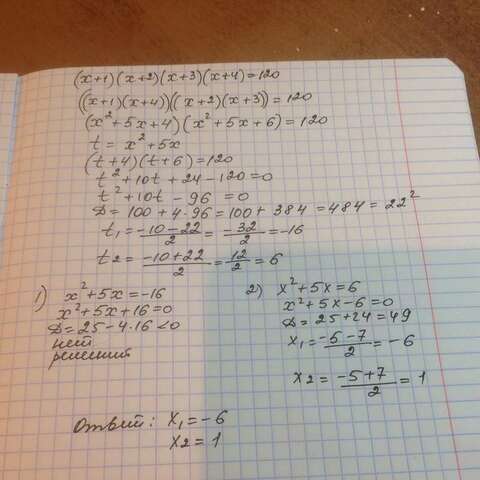 (x+1)(x+2)(x+3)(x+4)=120
((x+1)(x+4))((x+2)(x+3))=120
(x²+5x+4)(x²+5x+6)=120
t=x²+5x
(t+4)(t+6)=120
t²+10t+24-120=0
t²+10t-96=0
D=100+4·96=100+384=484=22²
t₁=(-10-22)/2=-32/2=-16
t2=(-10+22)/2=12/2=6
1) x²+5x=-16
x²+5x+16=0
D=25-4·16<0
нет
решений
2) x²+5x=6
x²+5x-6=0
D=25+24=49
x₁=(-5-7)/2=-6
x2=(-5+7)/2=1
Ответ: x₁=-6
x2=1